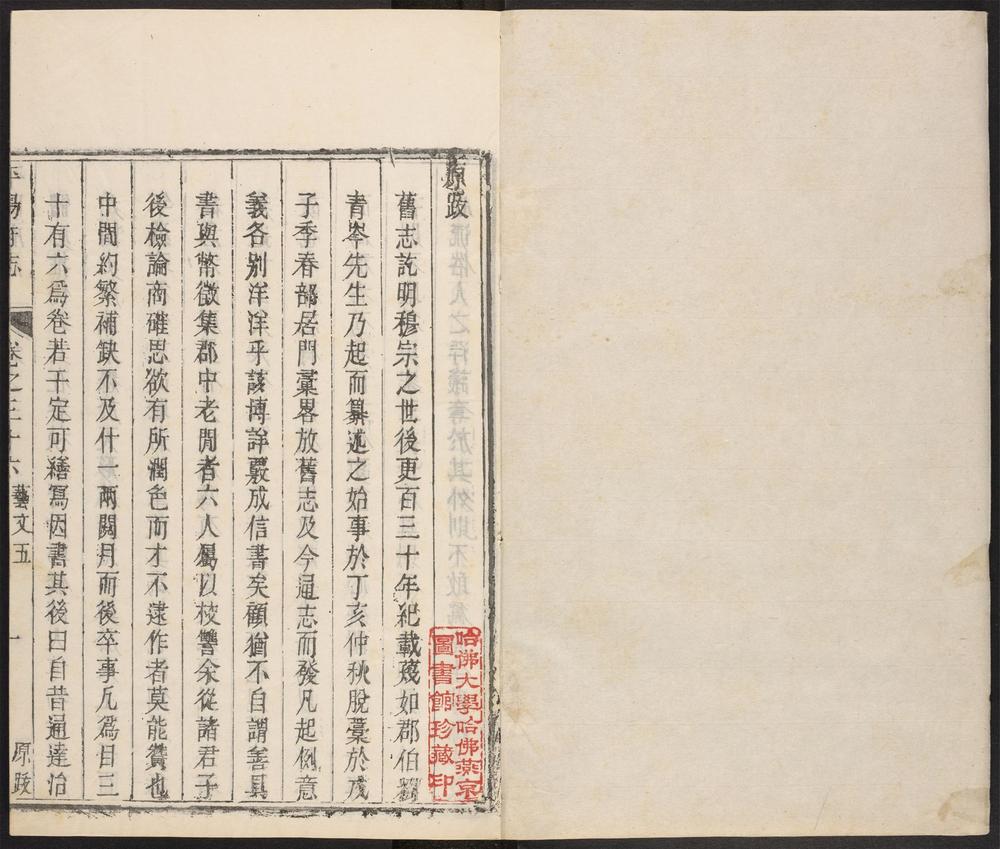 原跋
舊志訖明穆宗之世後更百三十年紀載蔑如郡伯劉
青岑先生乃起而纂述之始事於丁亥仲秋脫藁於戊
子季春部居門彙畧放舊志及今通志而發凡起例意
義各别洋洋乎該博詳覈成信書矣顧猶不自謂善具
書與幣徵集郡中老閒者六人屬以校讐余從諸君子
後檢論商確思欲有所潤色而才不逮作者莫能贊也
中間約繁補缺不及什一兩閱月而後卒事凡爲目三
十有六爲卷若干定可繕寫因書其後曰自昔通達治
平陽府志 卷之三十六 藝文五 一 原跋
哈佛大學哈佛燕京
圖書館珍藏印